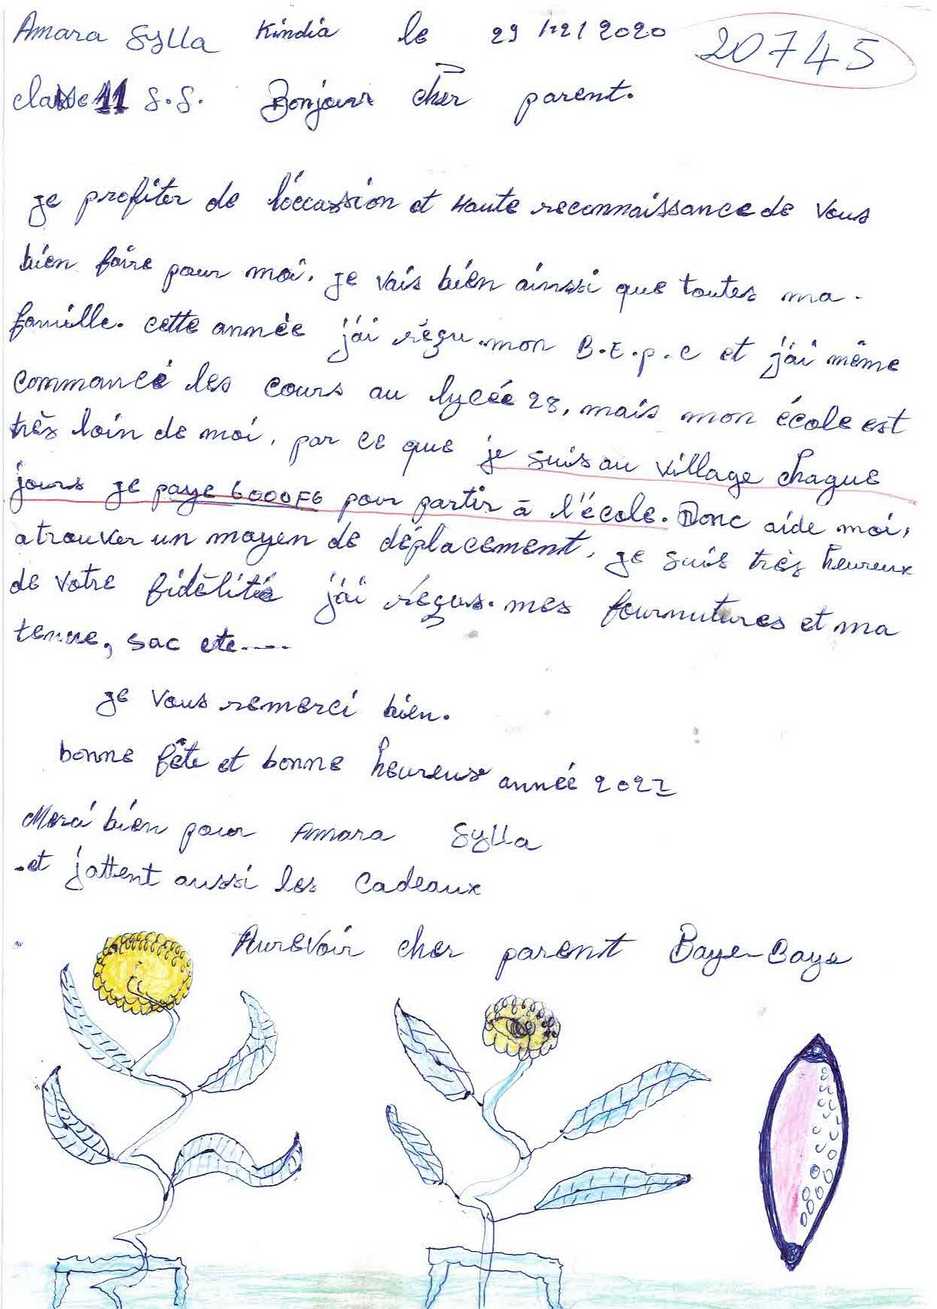 Amara Sylla Kindia le 29/12/2020 20745
classe 11 S.S. Bonjour cher parent.
je profiter de l'occassion et Haute reconnaissance de vous
bien faire pour moi. je vais bien ainssi que toutes ma
famille. cette année j'ai réçu mon B.E.P.C et j'ai même
commancé les cours au lycée 28, mais mon école est
très loin de moi, par ce que je suis au village chaque
jours je paye 6000FG pour partir à l'école. Donc aide moi,
a trouver un moyen de déplacement. je suis très heureux
de votre fidèlité j'ai réçus mes fournutures et ma
tenue, sac ete....
je vous remerci bien.
bonne fête et bonne heureuse année 202
Merci bien pour Amara Sylla
et j'attent aussi les cadeaux
Aurevoir cher parent Baye-Baye